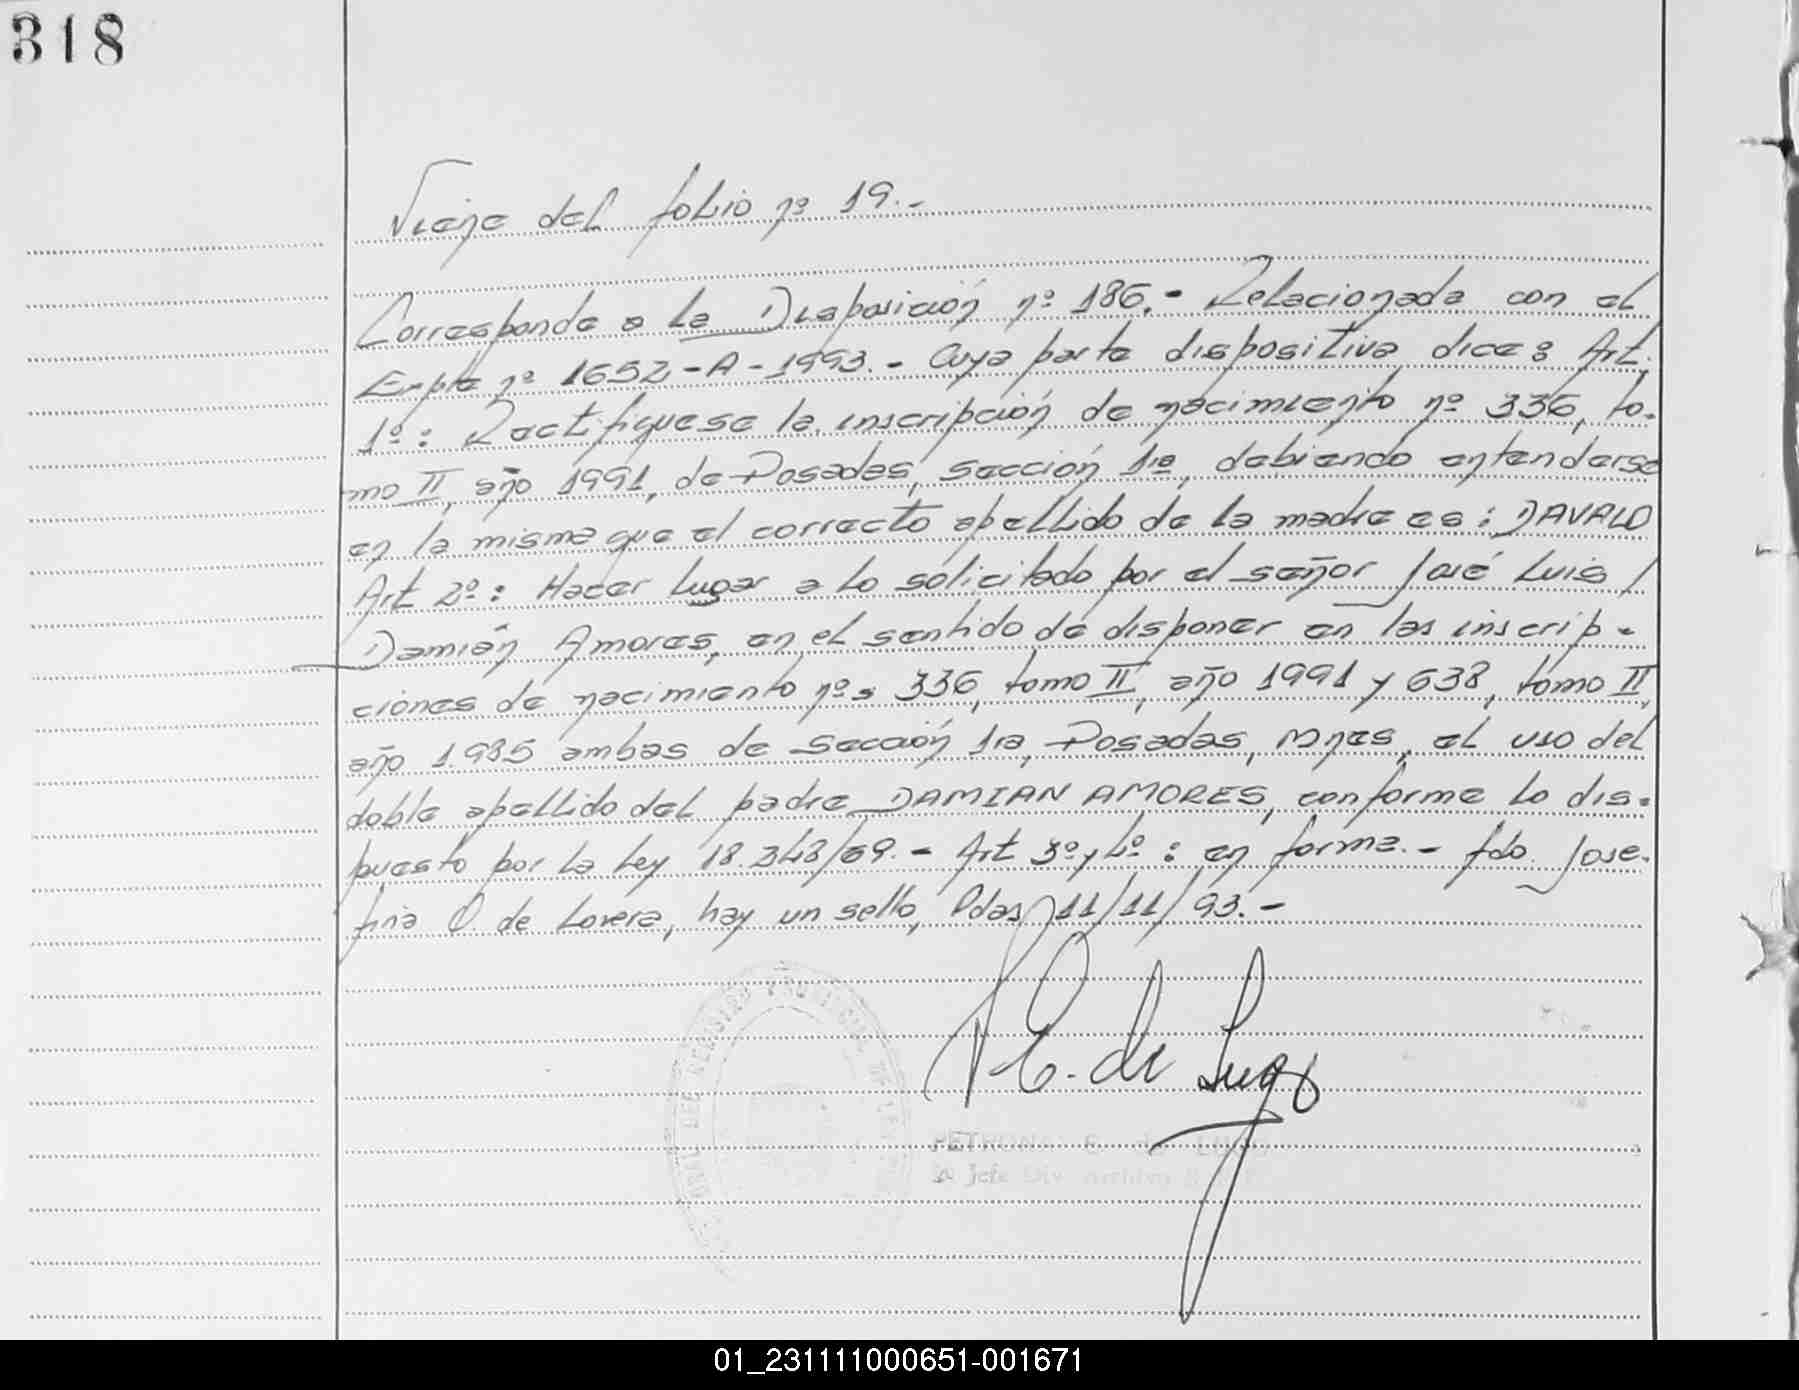 318
Viene del folio nº 19.-
Corresponde a la Disposición nº 186.- Relacionada con el
Expte nº 1652-A-1993.- Cuya parte dispositiva dice: Art.
1º: Rectifiquese la inscripción de nacimiento nº 336, to-
mo II, año 1991, de Posadas, Sección 1ra, debiendo entenderse
en la misma que el correcto apellido de la madre es: DAVALO
Art 2º: Hacer lugar a lo solicitado por el señor José Luis /
Damián Amores, en el sentido de disponer en las inscrip-
ciones de nacimiento nºs 336, tomo II, año 1991 y 638, tomo II,
año 1.985 ambas de Sección 1ra, Posadas, Mnes, el uso del
doble apellido del padre DAMIAN AMORES, conforme lo dis-
puesto por la Ley 18.248/69.- Art 3º y 4º: en forma.- fdo. Jose-
fina O. de Lovera, hay un sello, Pdas, 11/11/93.-
P E. de Lugo
PETRONA E de LUGO
Jefe Div Archivo
01_231111000651-001671